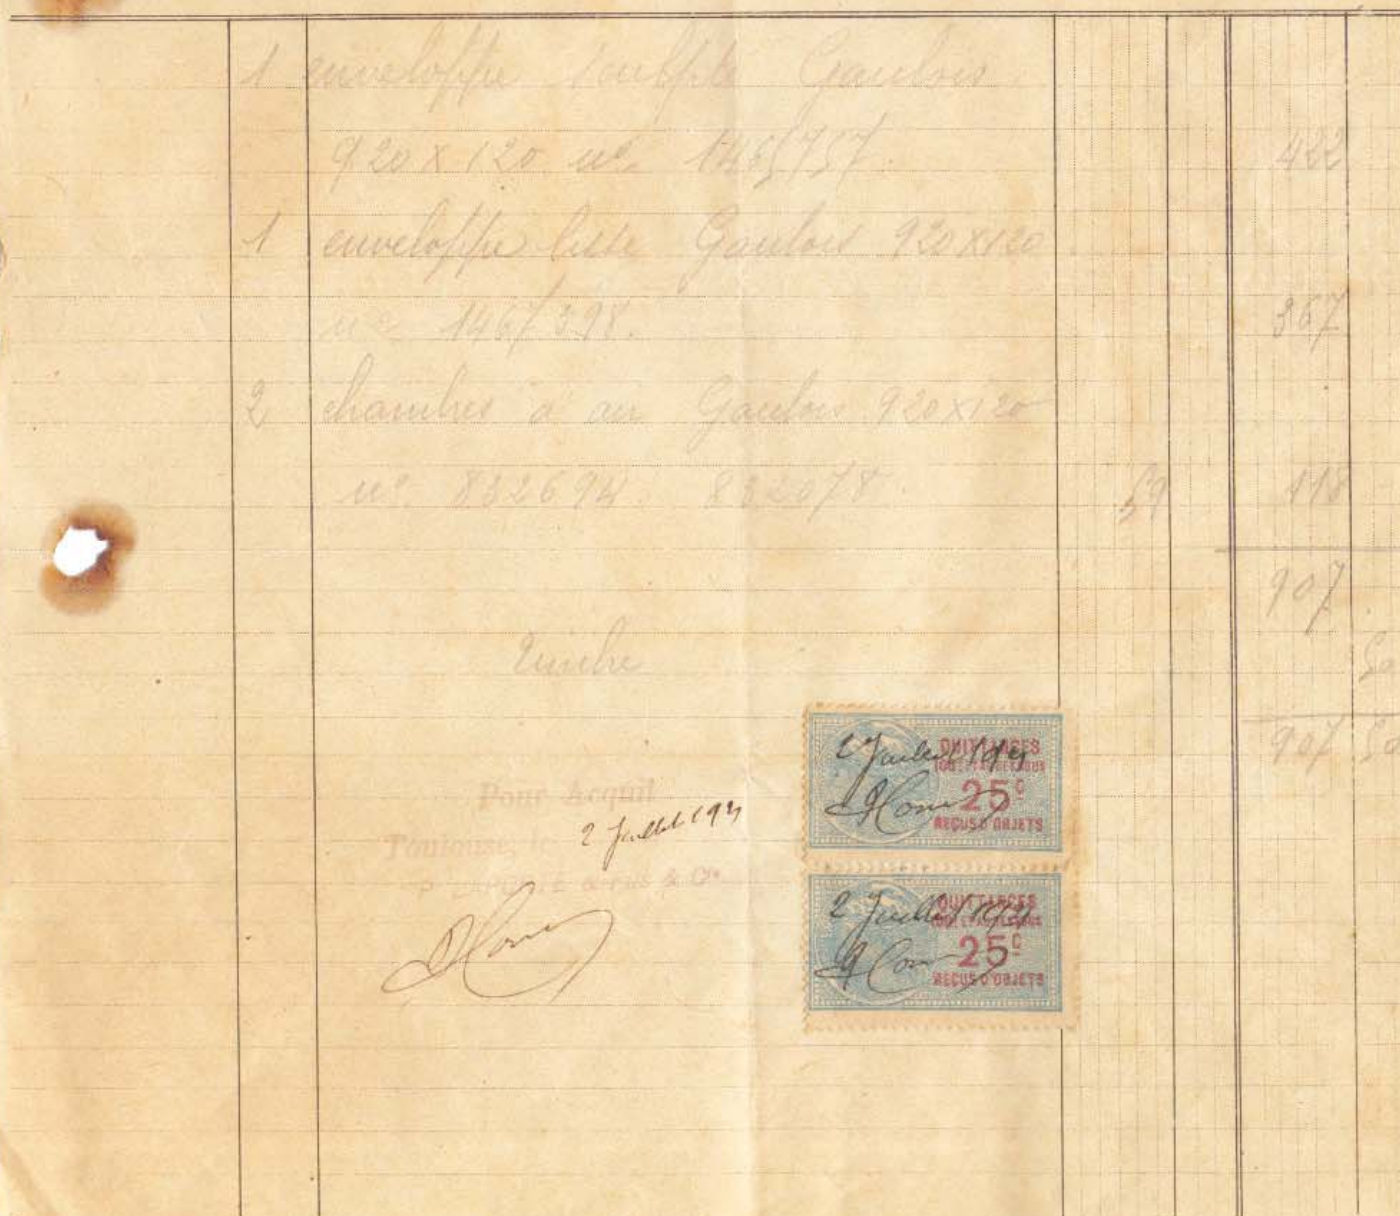 1 enveloppe Gaulois
920 x 120 no 1465757. 422
1 enveloppe lisse Gaulois 920x120
no 1467398. 367
2 chambres à air Gaulois 920x120
no 832694. 832078. 59 118
907
Timbre
907
Pour Acquit
2 Juillet 1921
Toulouse, le
& Fils & Cie
2 Juillet 1921
QUITTANCES
25c
REÇUS D'OBJETS
2 Juillet 1921
QUITTANCES
25c
REÇUS D'OBJETS